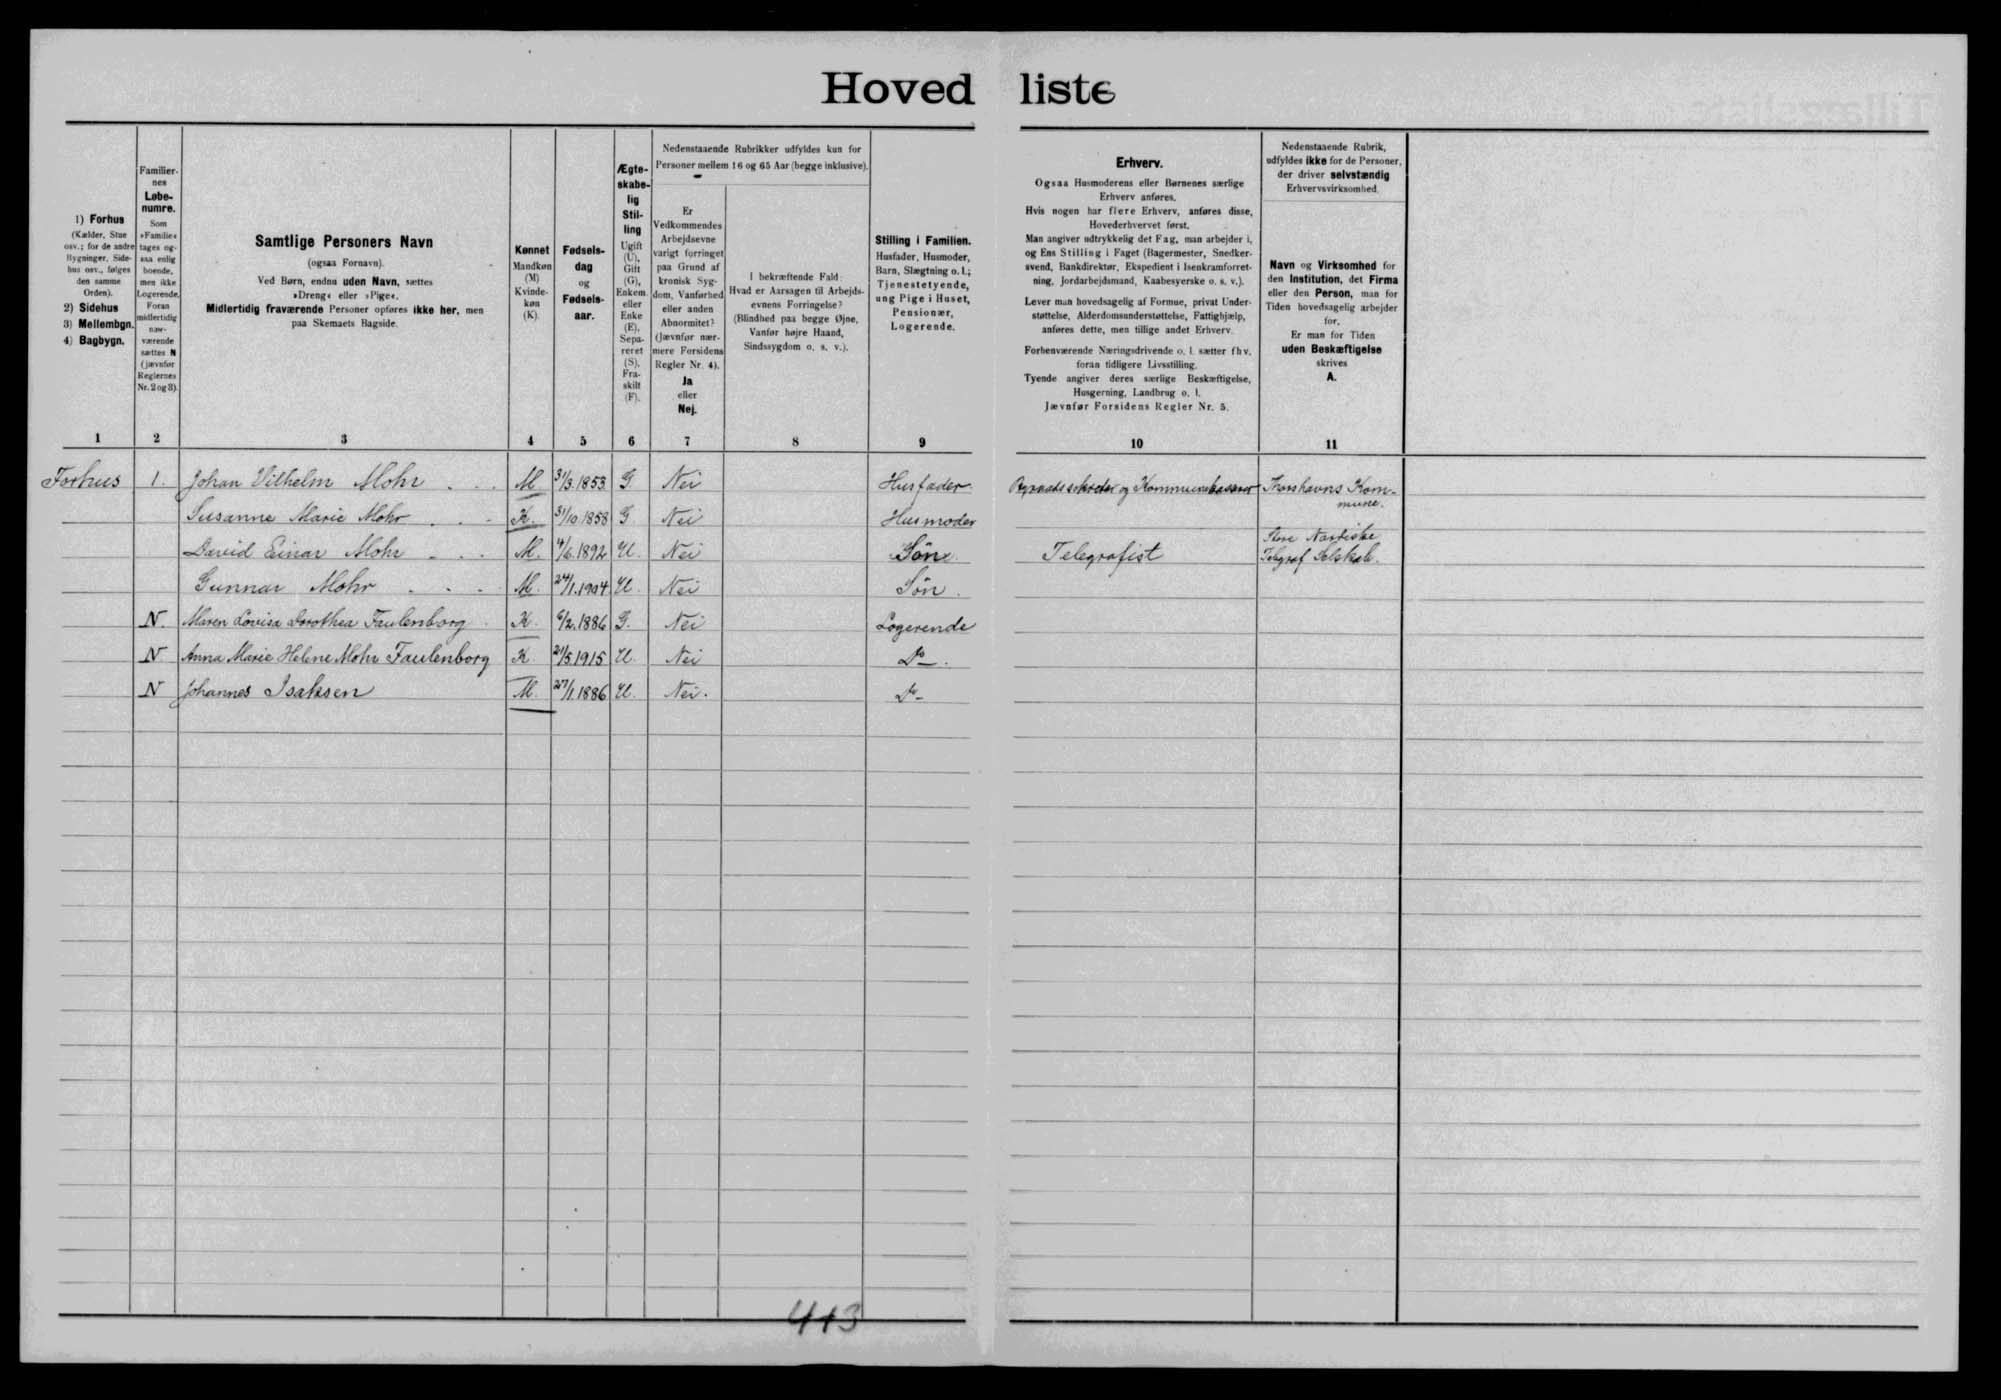 Hovedliste
1) Forhus
(Kælder, Stue
osv.; for de andre
Bygninger, Side-
hus osv., følges
den samme
Orden).
2) Sidehus
3) Mellembgn.
4) Bagbygn.
1
Familier-
nes
Løbe-
numre.
Som
»Familie«
tages og-
saa enlig
boende,
men ikke
Logerende.
Foran
midlertidig
nær-
værende
sættes N
(jævnfør
Reglernes
Nr. 2 og 3).
2
Samtlige Personers Navn
(ogsaa Fornavn).
Ved Børn, endnu uden Navn, sættes
»Dreng« eller »Pige«.
Midlertidig fraværende Personer opføres ikke her, men
paa Skemaets Bagside.
3
Kønnet
Mandkøn
(M)
Kvinde-
køn
(K).
4
Fødsels-
dag
og
Fødsels-
aar.
5
Ægte-
skabe-
lig
Stil-
ling
Ugift
(U),
Gift
(G),
Enkem.
eller
Enke
(E),
Sepa-
reret
(S),
Fra-
skilt
(F).
6
Nedenstaaende Rubrikker udfyldes kun for
Personer mellem 16 og 65 Aar (begge inklusive).
Er
Vedkommendes
Arbejdsevne
varigt forringet
paa Grund af
kronisk Syg-
dom, Vanførhed
eller anden
Abnormitet?
(Jævnfør nær-
mere Forsidens
Regler Nr. 4).
Ja
eller
Nej.
7
I bekræftende Fald:
Hvad er Aarsagen til Arbejds-
evnens Forringelse?
(Blindhed paa begge Øjne,
Vanfør højre Haand,
Sindssygdom o. s. v.).
8
Stilling i Familien.
Husfader, Husmoder,
Barn, Slægtning o. l.;
Tjenestetyende,
ung Pige i Huset,
Pensionær,
Logerende.
9
Erhverv.
Ogsaa Husmoderens eller Børnenes særlige
Erhverv anføres.
Hvis nogen har flere Erhverv, anføres disse,
Hovederhvervet først.
Man angiver udtrykkelig det Fag, man arbejder i,
og Ens Stilling i Faget (Bagermester, Snedker-
svend, Bankdirektør, Ekspedient i Isenkramforret-
ning, Jordarbejdsmand, Kaabesyerske o. s. v.).
Lever man hovedsagelig af Formue, privat Under-
støttelse, Alderdomsunderstøttelse, Fattighjælp,
anføres dette, men tillige andet Erhverv.
Forhenværende Næringsdrivende o. l. sætter fhv.
foran tidligere Livsstilling.
Tyende angiver deres særlige Beskæftigelse,
Husgerning, Landbrug o. l.
Jævnfør Forsidens Regler Nr. 5.
10
Nedenstaaende Rubrik,
udfyldes ikke for de Personer,
der driver selvstændig
Erhvervsvirksomhed.
Navn og Virksomhed for
den Institution, det Firma
eller den Person, man for
Tiden hovedsagelig arbejder
for.
Er man for Tiden
uden Beskæftigelse
skrives
A.
11
Forhus 1. Johan Vilhelm Mohr M. 31/3.1853 G. Nei Husfader Byraadssekretær og Kommunekasserer Thorshavns Kom-
mune.
Susanne Marie Mohr K. 31/10.1858 G Nei Husmoder
David Einar Mohr M. 4/6.1892 U. Nei Søn. Telegrafist Store Nordiske
Telegraf Selskab.
Gunnar Mohr M. 24/1.1904 U. Nei Søn.
N. Maren Lovisa Dorothea Faulenborg K. 6/2.1886 G. Nei Logerende
N Anna Marie Helene Mohr Faulenborg K. 21/5.1915 U. Nei Do.
N Johannes Isaksen M. 27/1.1886 U. Nei. Do
413